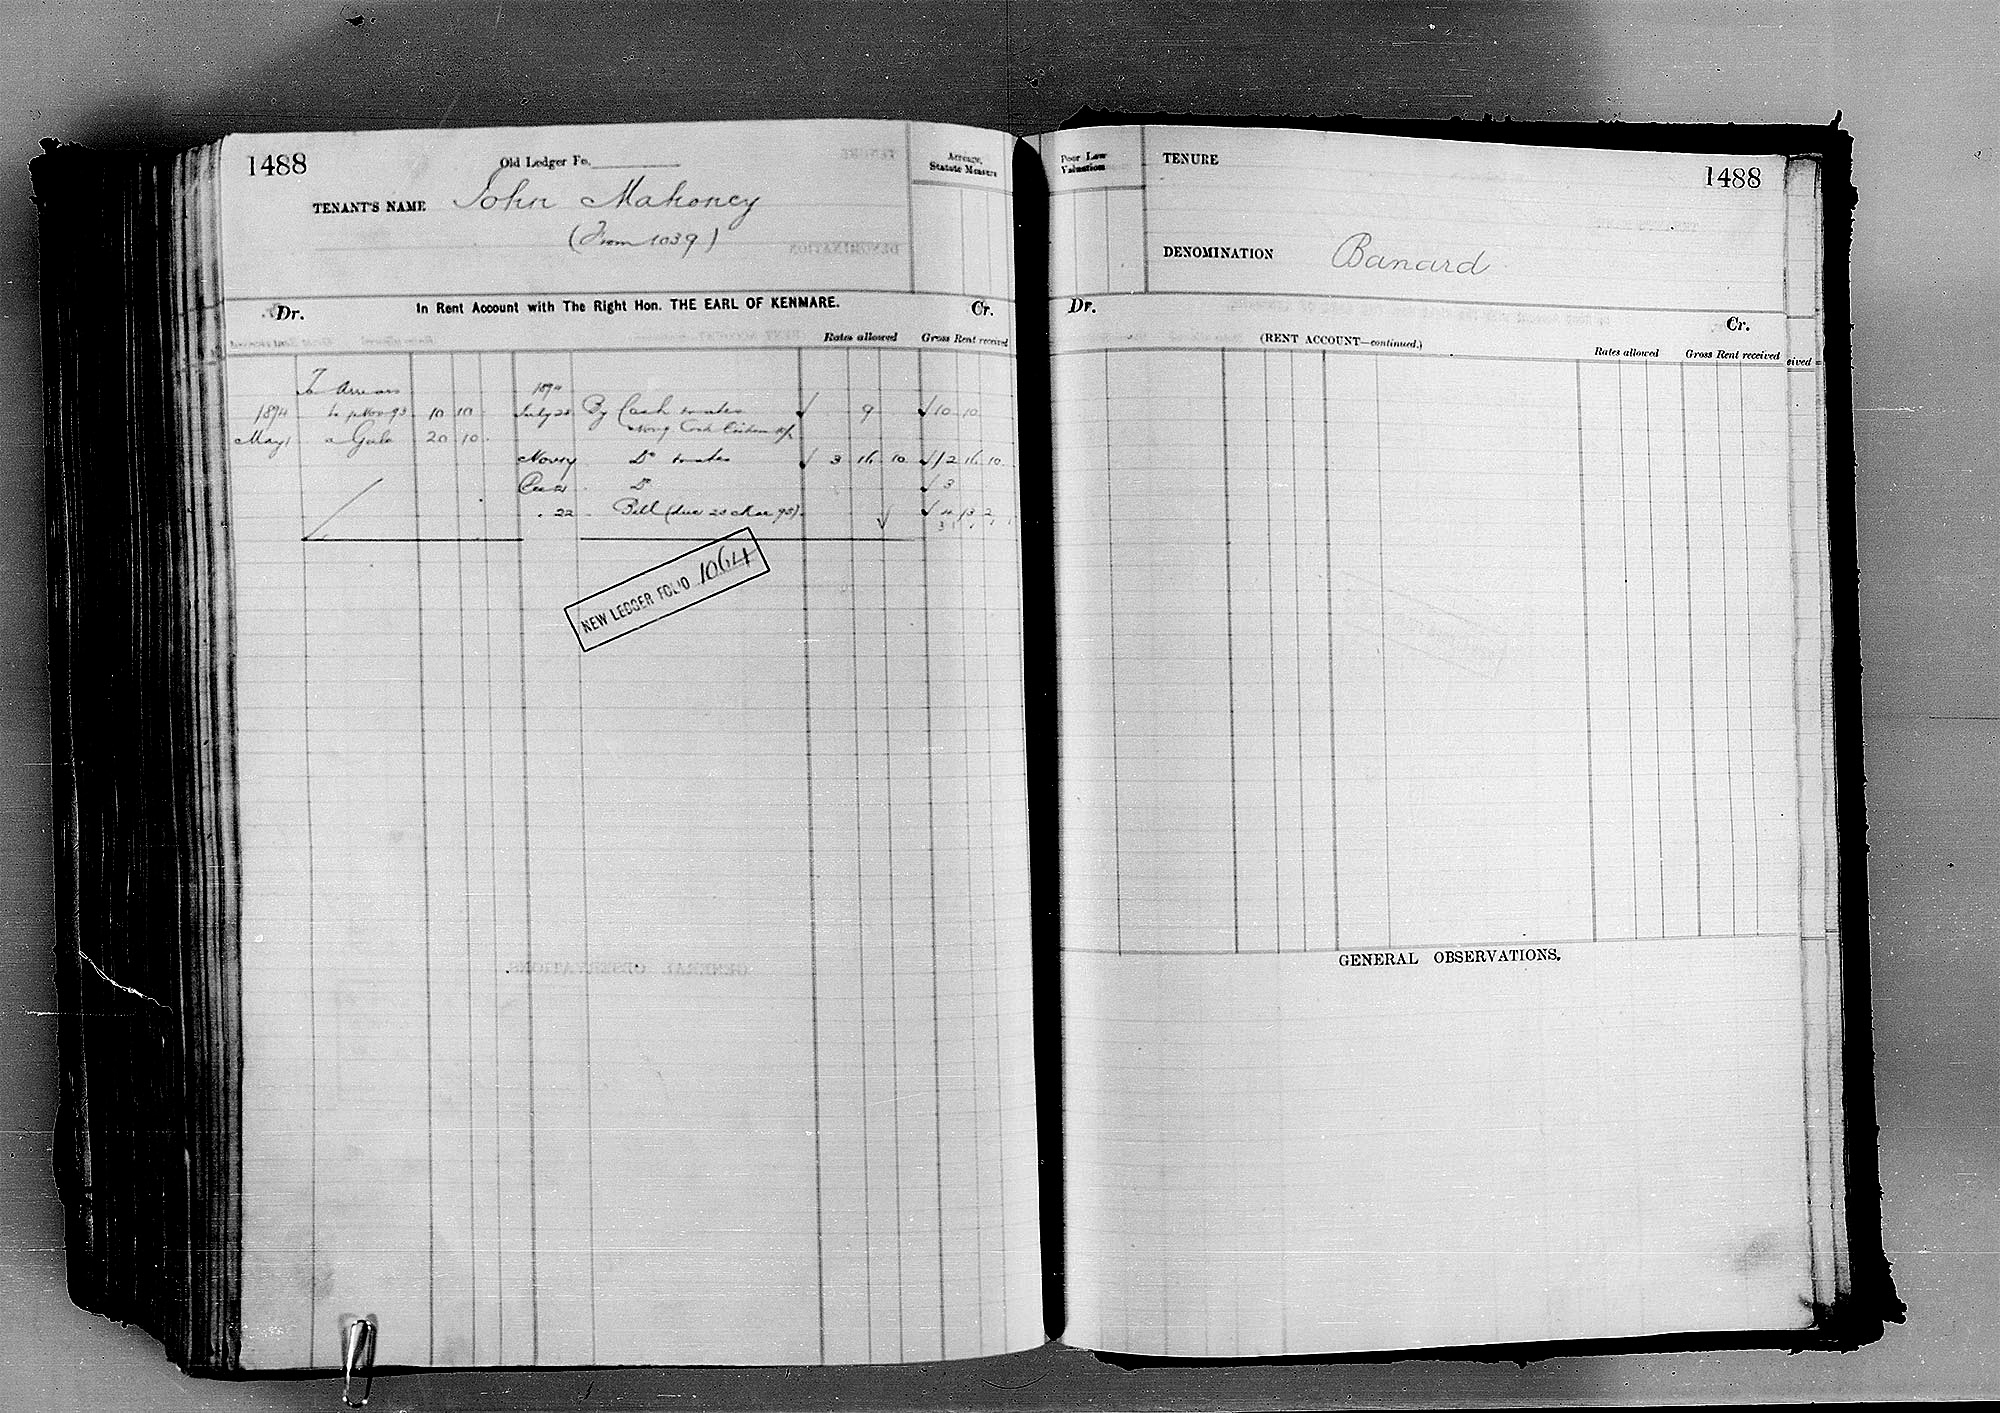 1488
Old Ledger Fo.
TENANT'S NAME John Mahoney
(From 1039)
Acreage, Statute Measure
Dr. In Rent Account with The Right Hon. THE EARL OF KENMARE. Cr.
Rates allowed Gross Rent received
To Arrears 1894
1894 to 1 Nov 93 10 10 July 28 By Cash 9 10 10
May 1 a Gale 20 10
Do 3 16 10 12 16 10
Do 3
22 Bill (due
NEW LEDGER FOLIO 1064
Poor Law Valuation
TENURE
1488
DENOMINATION Banard
Dr. Cr.
(RENT ACCOUNT—continued.)
Rates allowed Gross Rent received
GENERAL OBSERVATIONS.